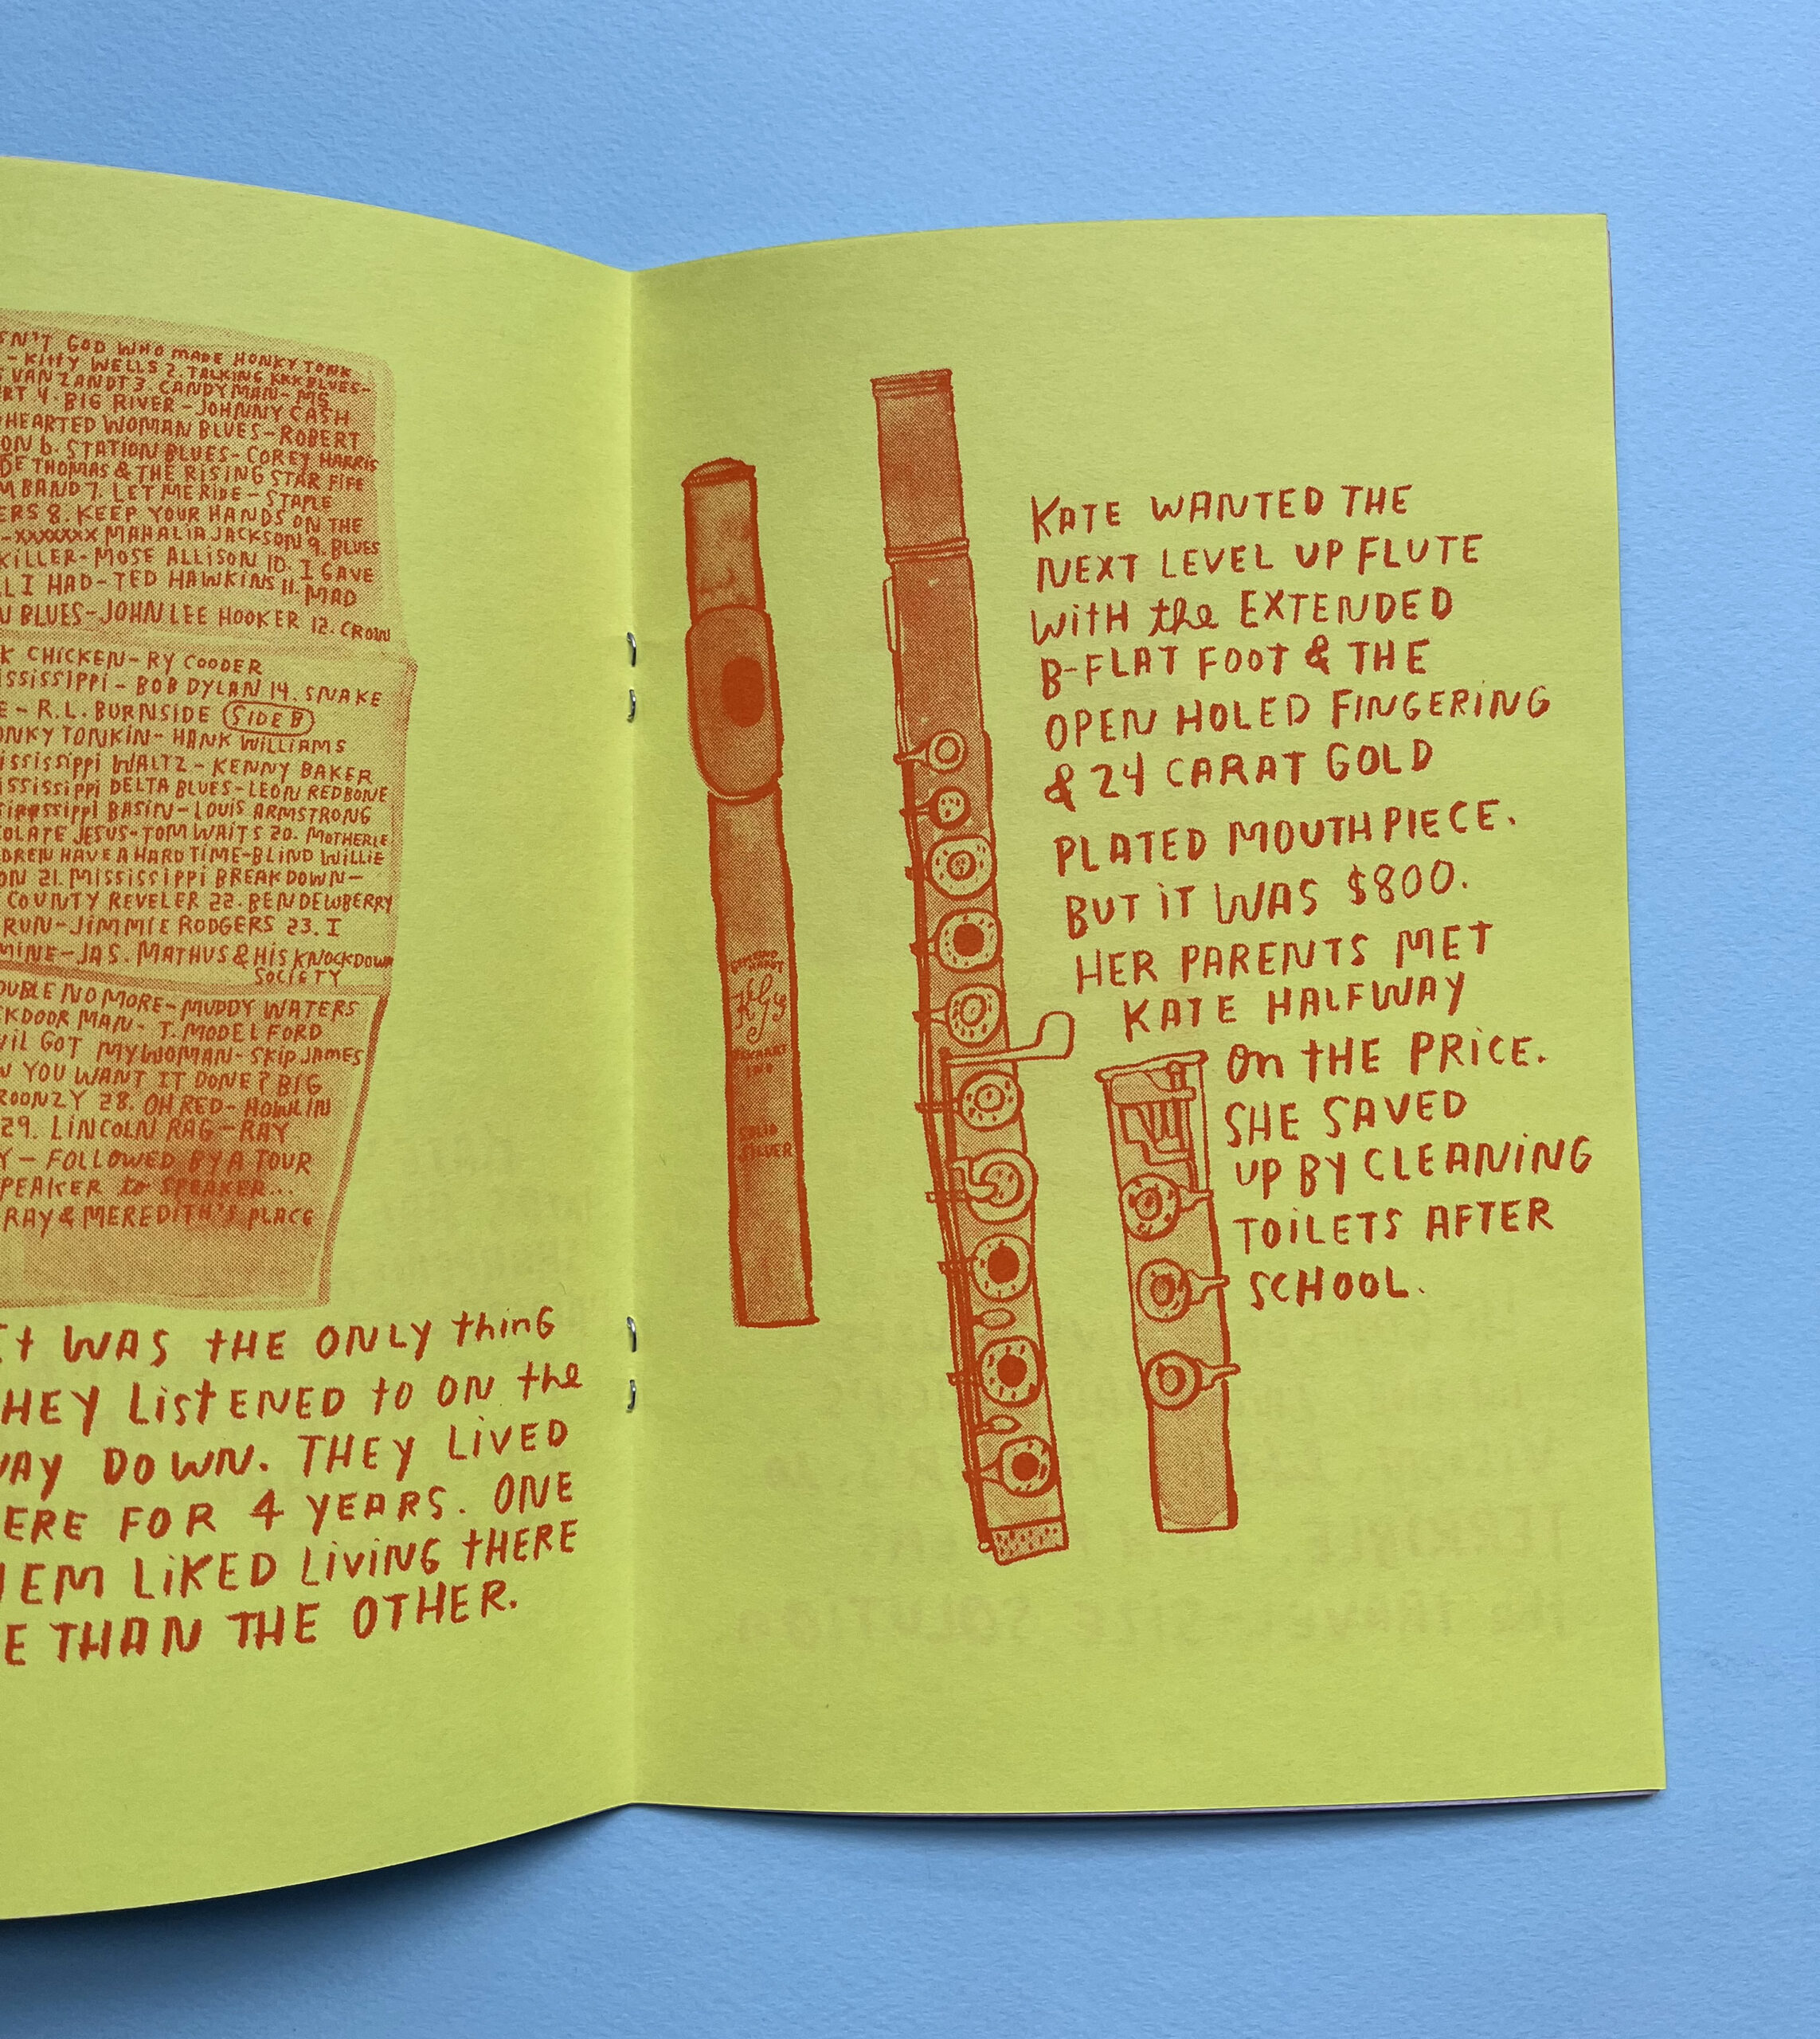 GOD WHO MADE HONKY TONK
- KITTY WELLS 2. TALKING KKK BLUES-
VAN ZANDT 3. CANDYMAN- MS
4. BIG RIVER - JOHNNY CASH
HEARTED WOMAN BLUES- ROBERT
6. STATION BLUES- COREY HARRIS
THOMAS & THE RISING STAR FIFE
BAND 7. LET ME RIDE - STAPLE
8. KEEP YOUR HANDS ON THE
-XXXXXXX MAHALIA JACKSON 9. BLUES
KILLER- MOSE ALLISON 10. I GAVE
I HAD- TED HAWKINS 11. MAD
BLUES- JOHN LEE HOOKER 12. CROW
CHICKEN- RY COODER
ISSISSIPPI - BOB DYLAN 14. SNAKE
- R.L. BURNSIDE SIDE B
ONKY TONKIN- HANK WILLIAMS
ISSISSIPPI WALTZ - KENNY BAKER
ISSISSIPPI DELTA BLUES- LEON REDBONE
BASIN- LOUIS ARMSTRONG
OLATE JESUS- TOM WAITS 20. MOTHERLE
DREN HAVE A HARD TIME- BLIND WILLIE
ON 21. MISSISSIPPI BREAKDOWN-
COUNTY REVELER 22. BEN DEWBERRY
RUN- JIMMIE RODGERS 23. I
MINE- JAS. MATHUS & HIS KNOCKDOWN
SOCIETY
OUBLE NO MORE- MUDDY WATERS
CKDOOR MAN- T. MODEL FORD
VIL GOT MY WOMAN- SKIP JAMES
YOU WANT IT DONE? BIG
ROONZY 28. OH RED- HOWLIN
29. LINCOLN RAG- RAY
Y - FOLLOWED BY A TOUR
PEAKER to SPEAKER...
RAY & MEREDITH'S PLACE
It WAS tHE ONLY thinG
HEY LiStENED tO ON the
WAY DOWN. THEY LiVED
ERE FOR 4 YEARS. ONE
HEM LiKED LiViNG tHERE
E THAN THE OTHER.
KGY
SOLID
SILVER
KATE WANTED THE
NEXT LEVEL UP FLUTE
WitH the EXTENDED
B-FLAT FOOT & THE
OPEN HOLED FiNGERING
& 24 CARAT GOLD
PLATED MOUTHPIECE.
BUT iT WAS $800.
HER PARENTS MET
KATE HALFWAY
On tHE PRiCE.
SHE SAVED
UP BY CLEANiNG
TOiLETS AFTER
SCHOOL.